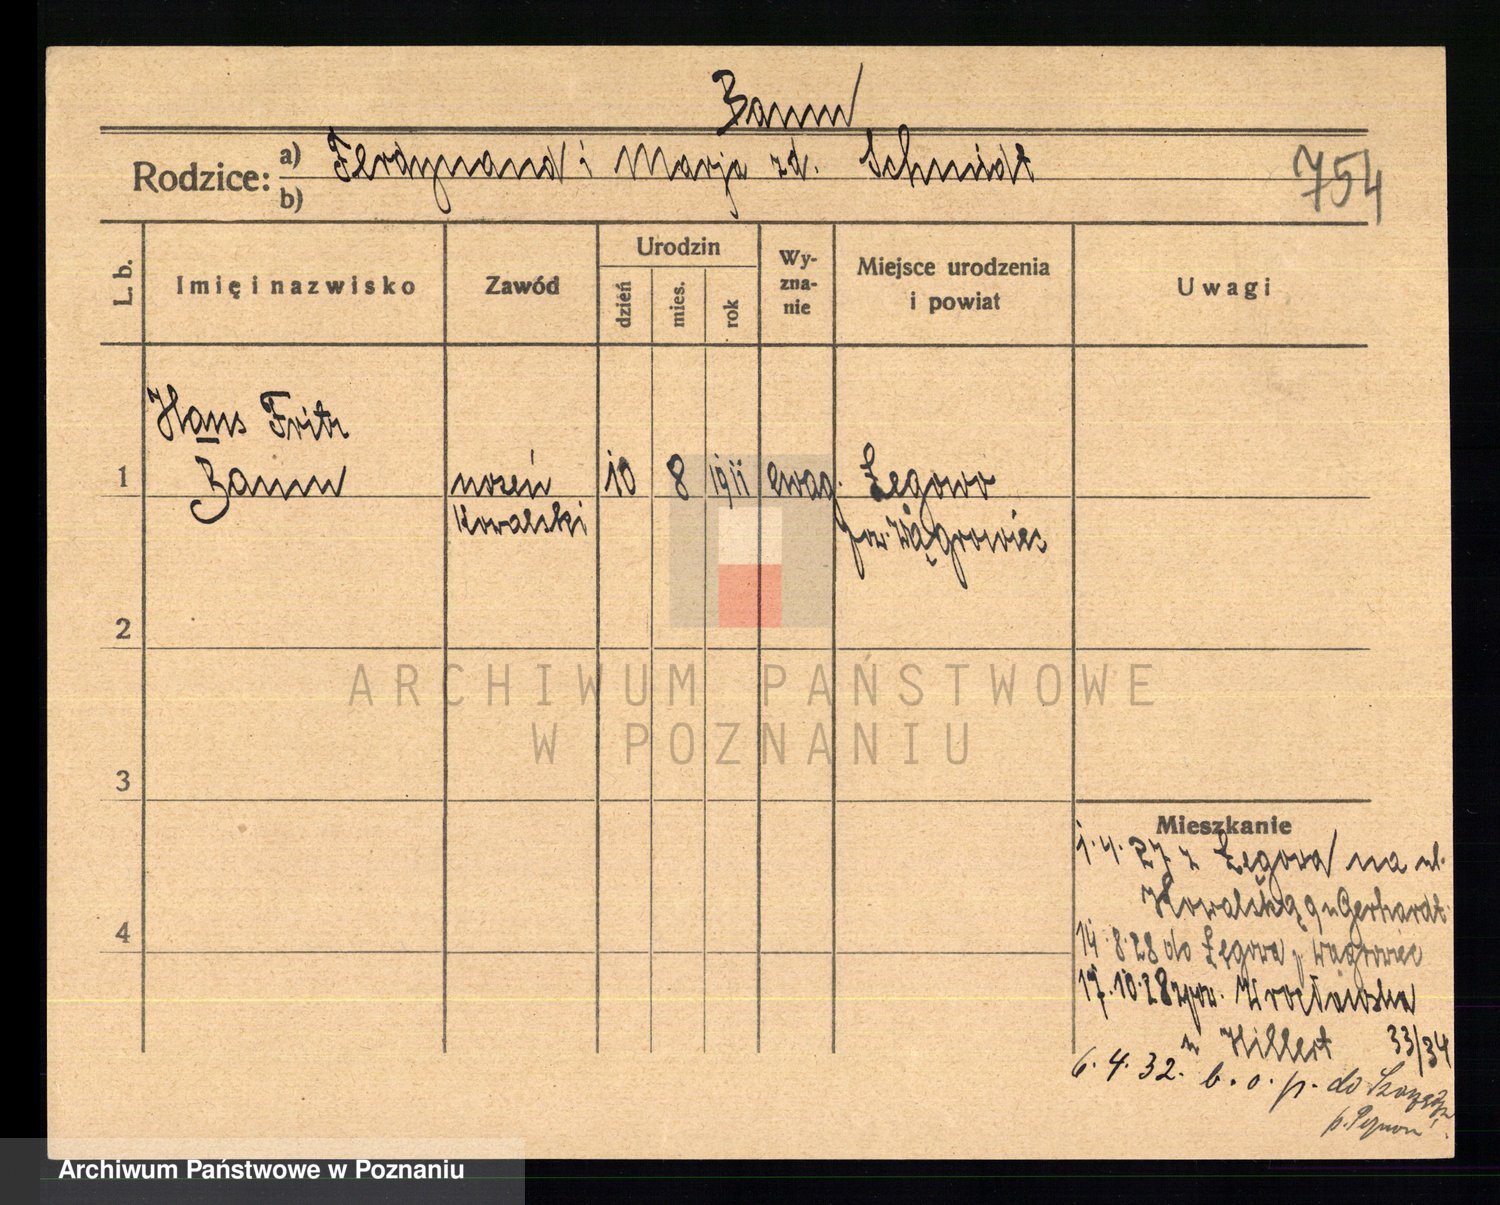 Baum
Rodzice: a) Ferdynand i Marja zd. Schmidt
b)
754
L. b.
Imię i nazwisko
Zawód
Urodzin
dzień
mies.
rok
Wy-
zna-
nie
Miejsce urodzenia
i powiat
Uwagi
Hans Fritz
1 Baum uczeń 10 8 1911 ewag. Łęgowo
kowalski pow. Wągrowiec
2
3
4
Mieszkanie
1.4.27 z Łęgowa na ul.
Kowalską 9 u Gerhardt
14.8.28 do Łęgowa p. Wągrowiec
17.10.28 Wrocławska
u Hillert 33/34
6.4.32. b. o. p. do
ARCHIWUM PAŃSTWOWE
W POZNANIU
Archiwum Państwowe w Poznaniu